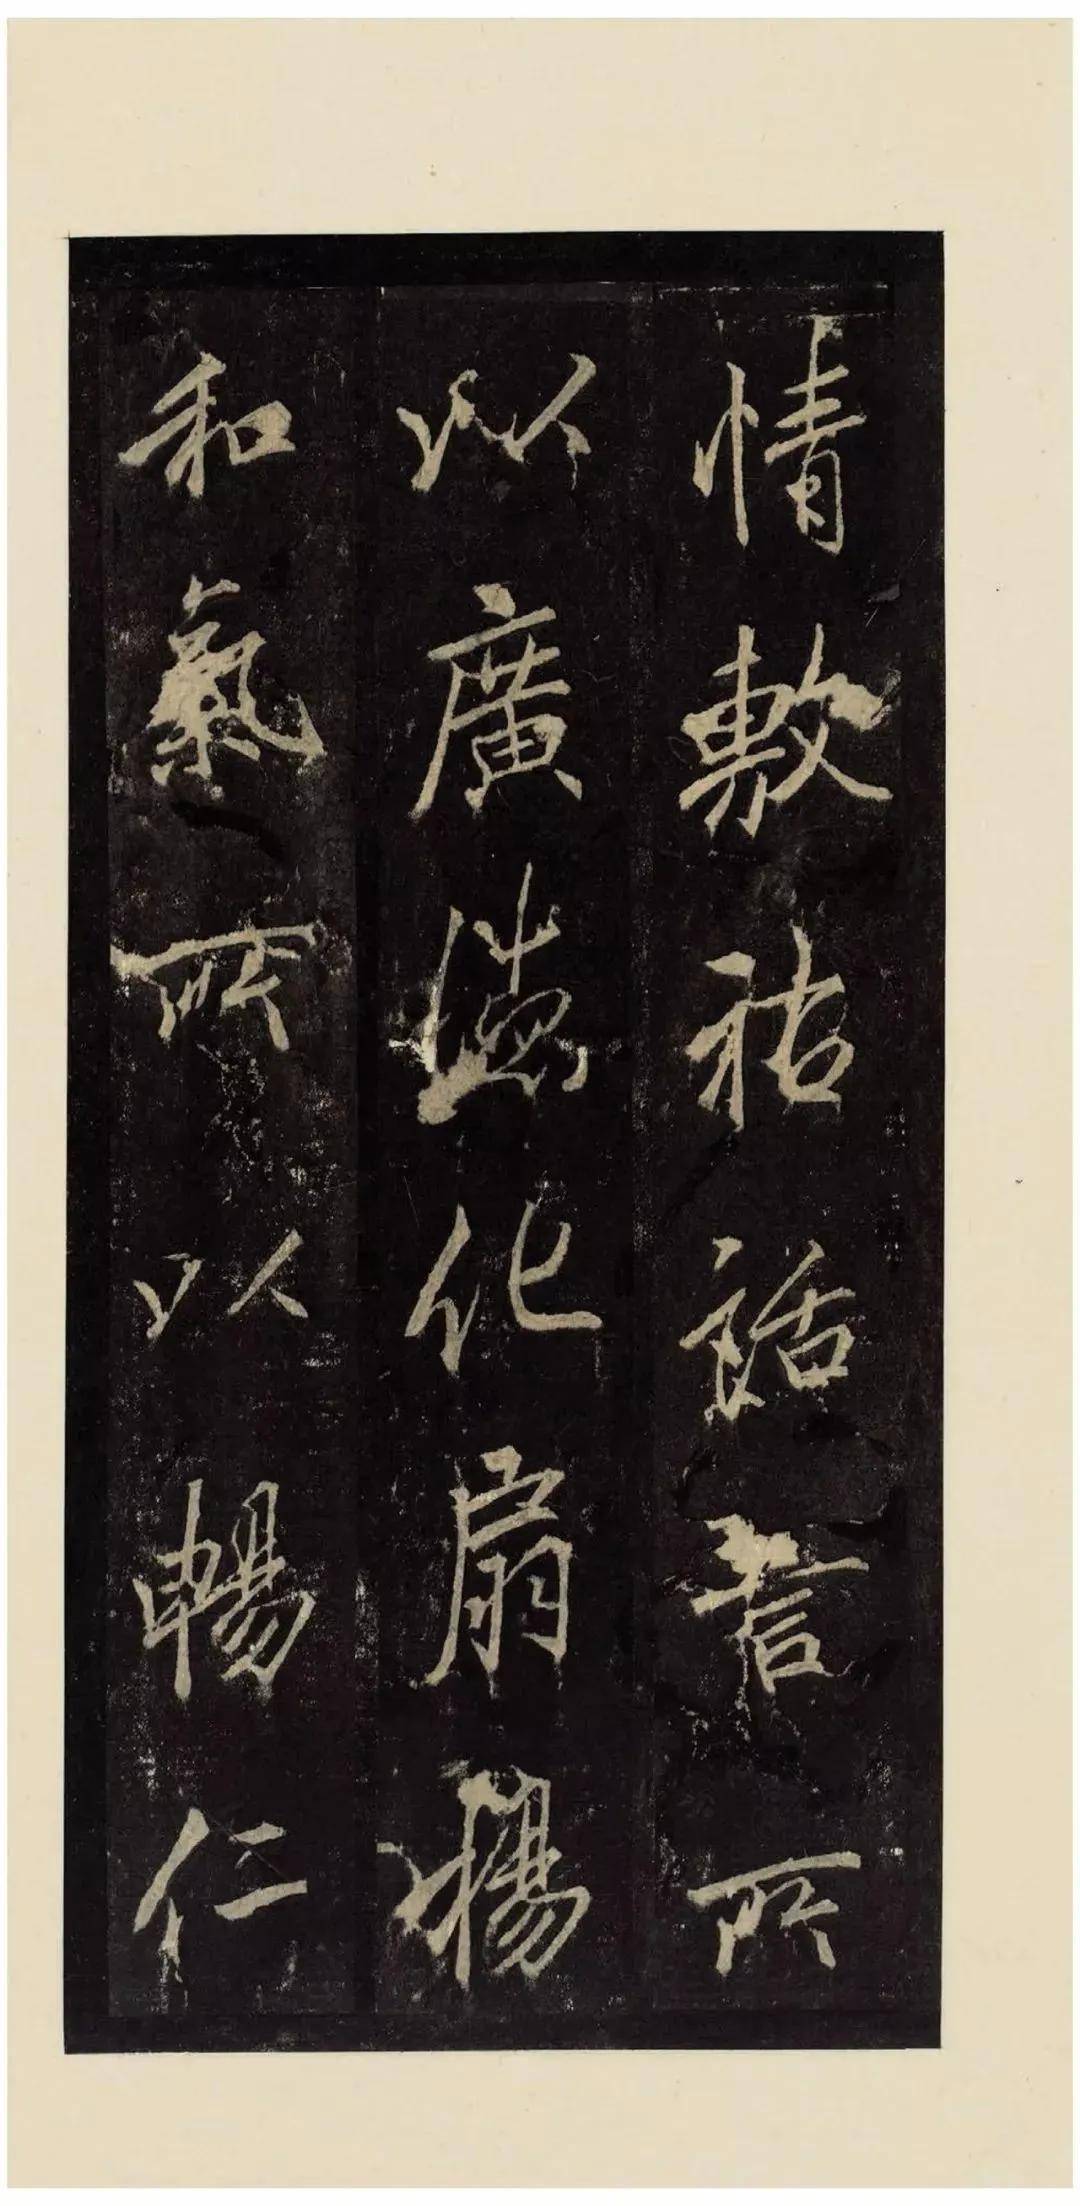 情敷祜話言所
以廣德化扇揚
和氣所以暢仁